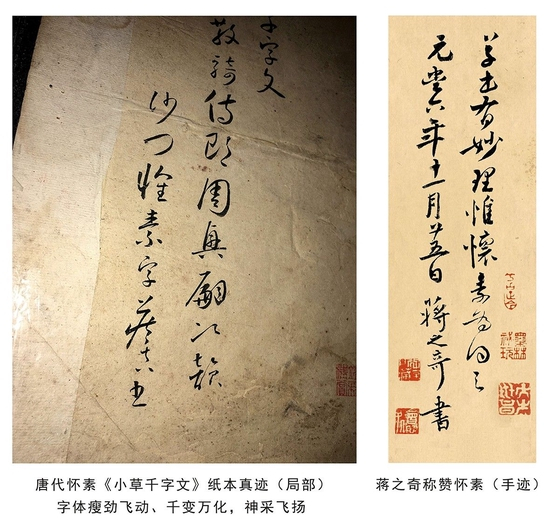 千字文
散騎侍郎周興嗣次韻
沙門懷素字藏真書
草書有妙理惟懷素為得之
元豐六年十一月廿五日蔣之奇書
唐代怀素《小草千字文》纸本真迹（局部）
字体瘦劲飞动、千变万化，神采飞扬
蒋之奇称赞怀素（手迹）